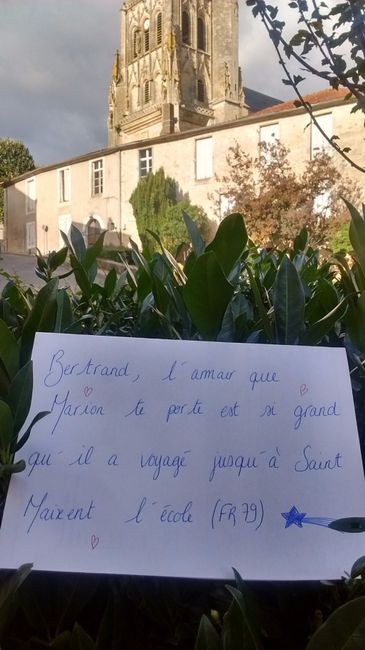 Bertrand, l'amour que
Marion te porte est si grand
qu'il a voyagé jusqu'à Saint
Maixent l'école (FR 79)